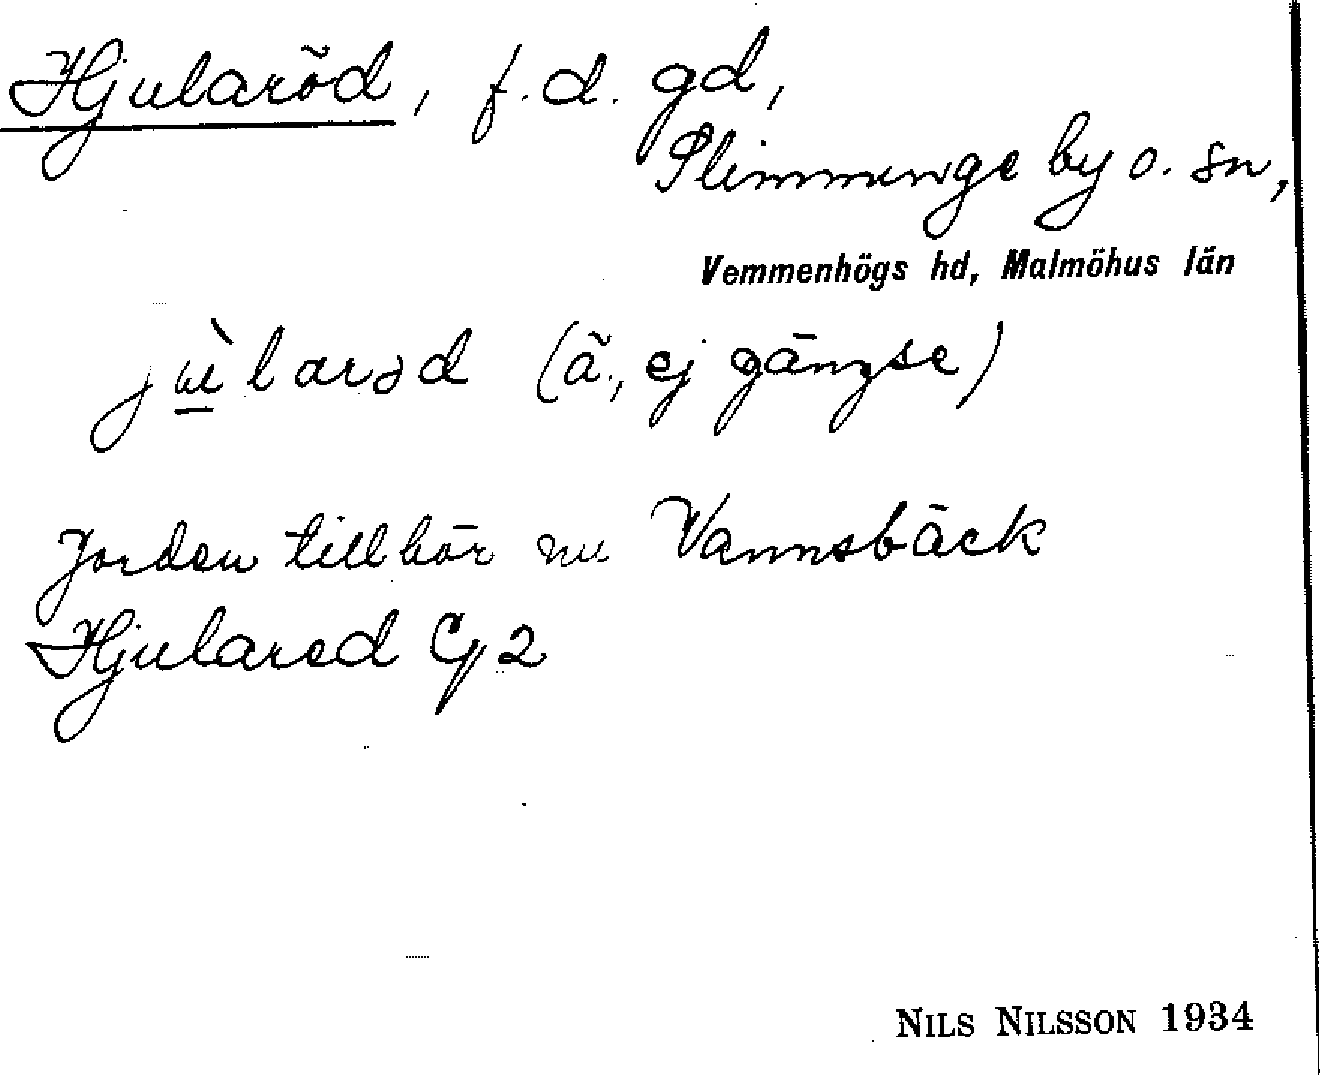 Hjularöd, f.d. gd,
Slimminge by o. sn,
Vemmenhögs hd, Malmöhus län
jùlarəd (ä., ej gängse)
Jorden tillhör nu Vannsbäck
Hjulared G2
NILS NILSSON 1934